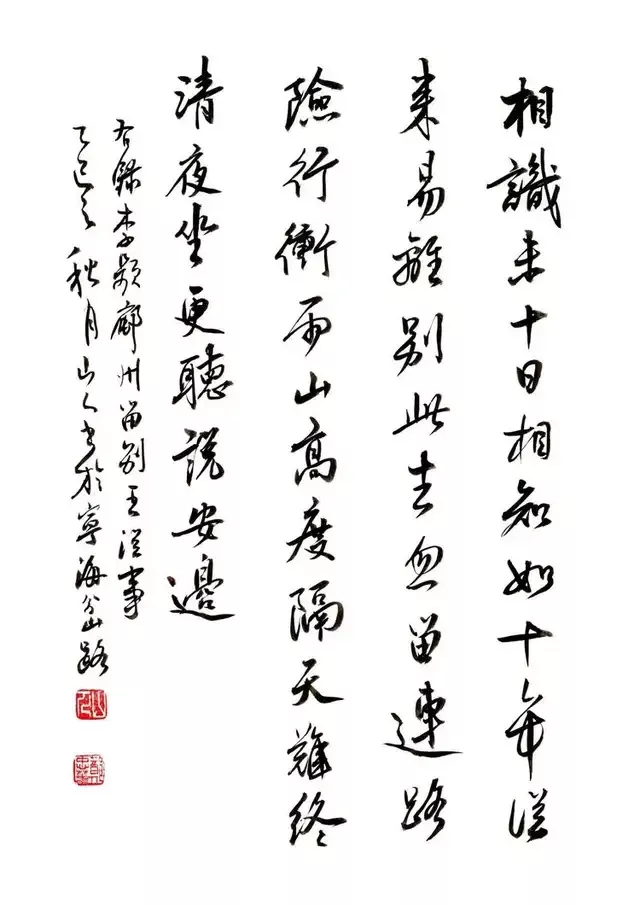 相識未十日相知如十年從
來易離別此去忽留連路
險行衝雨山高度隔天難終
清夜坐更聽說安邊
右錄李頻鄜州留別王從事
乙巳之秋月山人書於寧海岔路